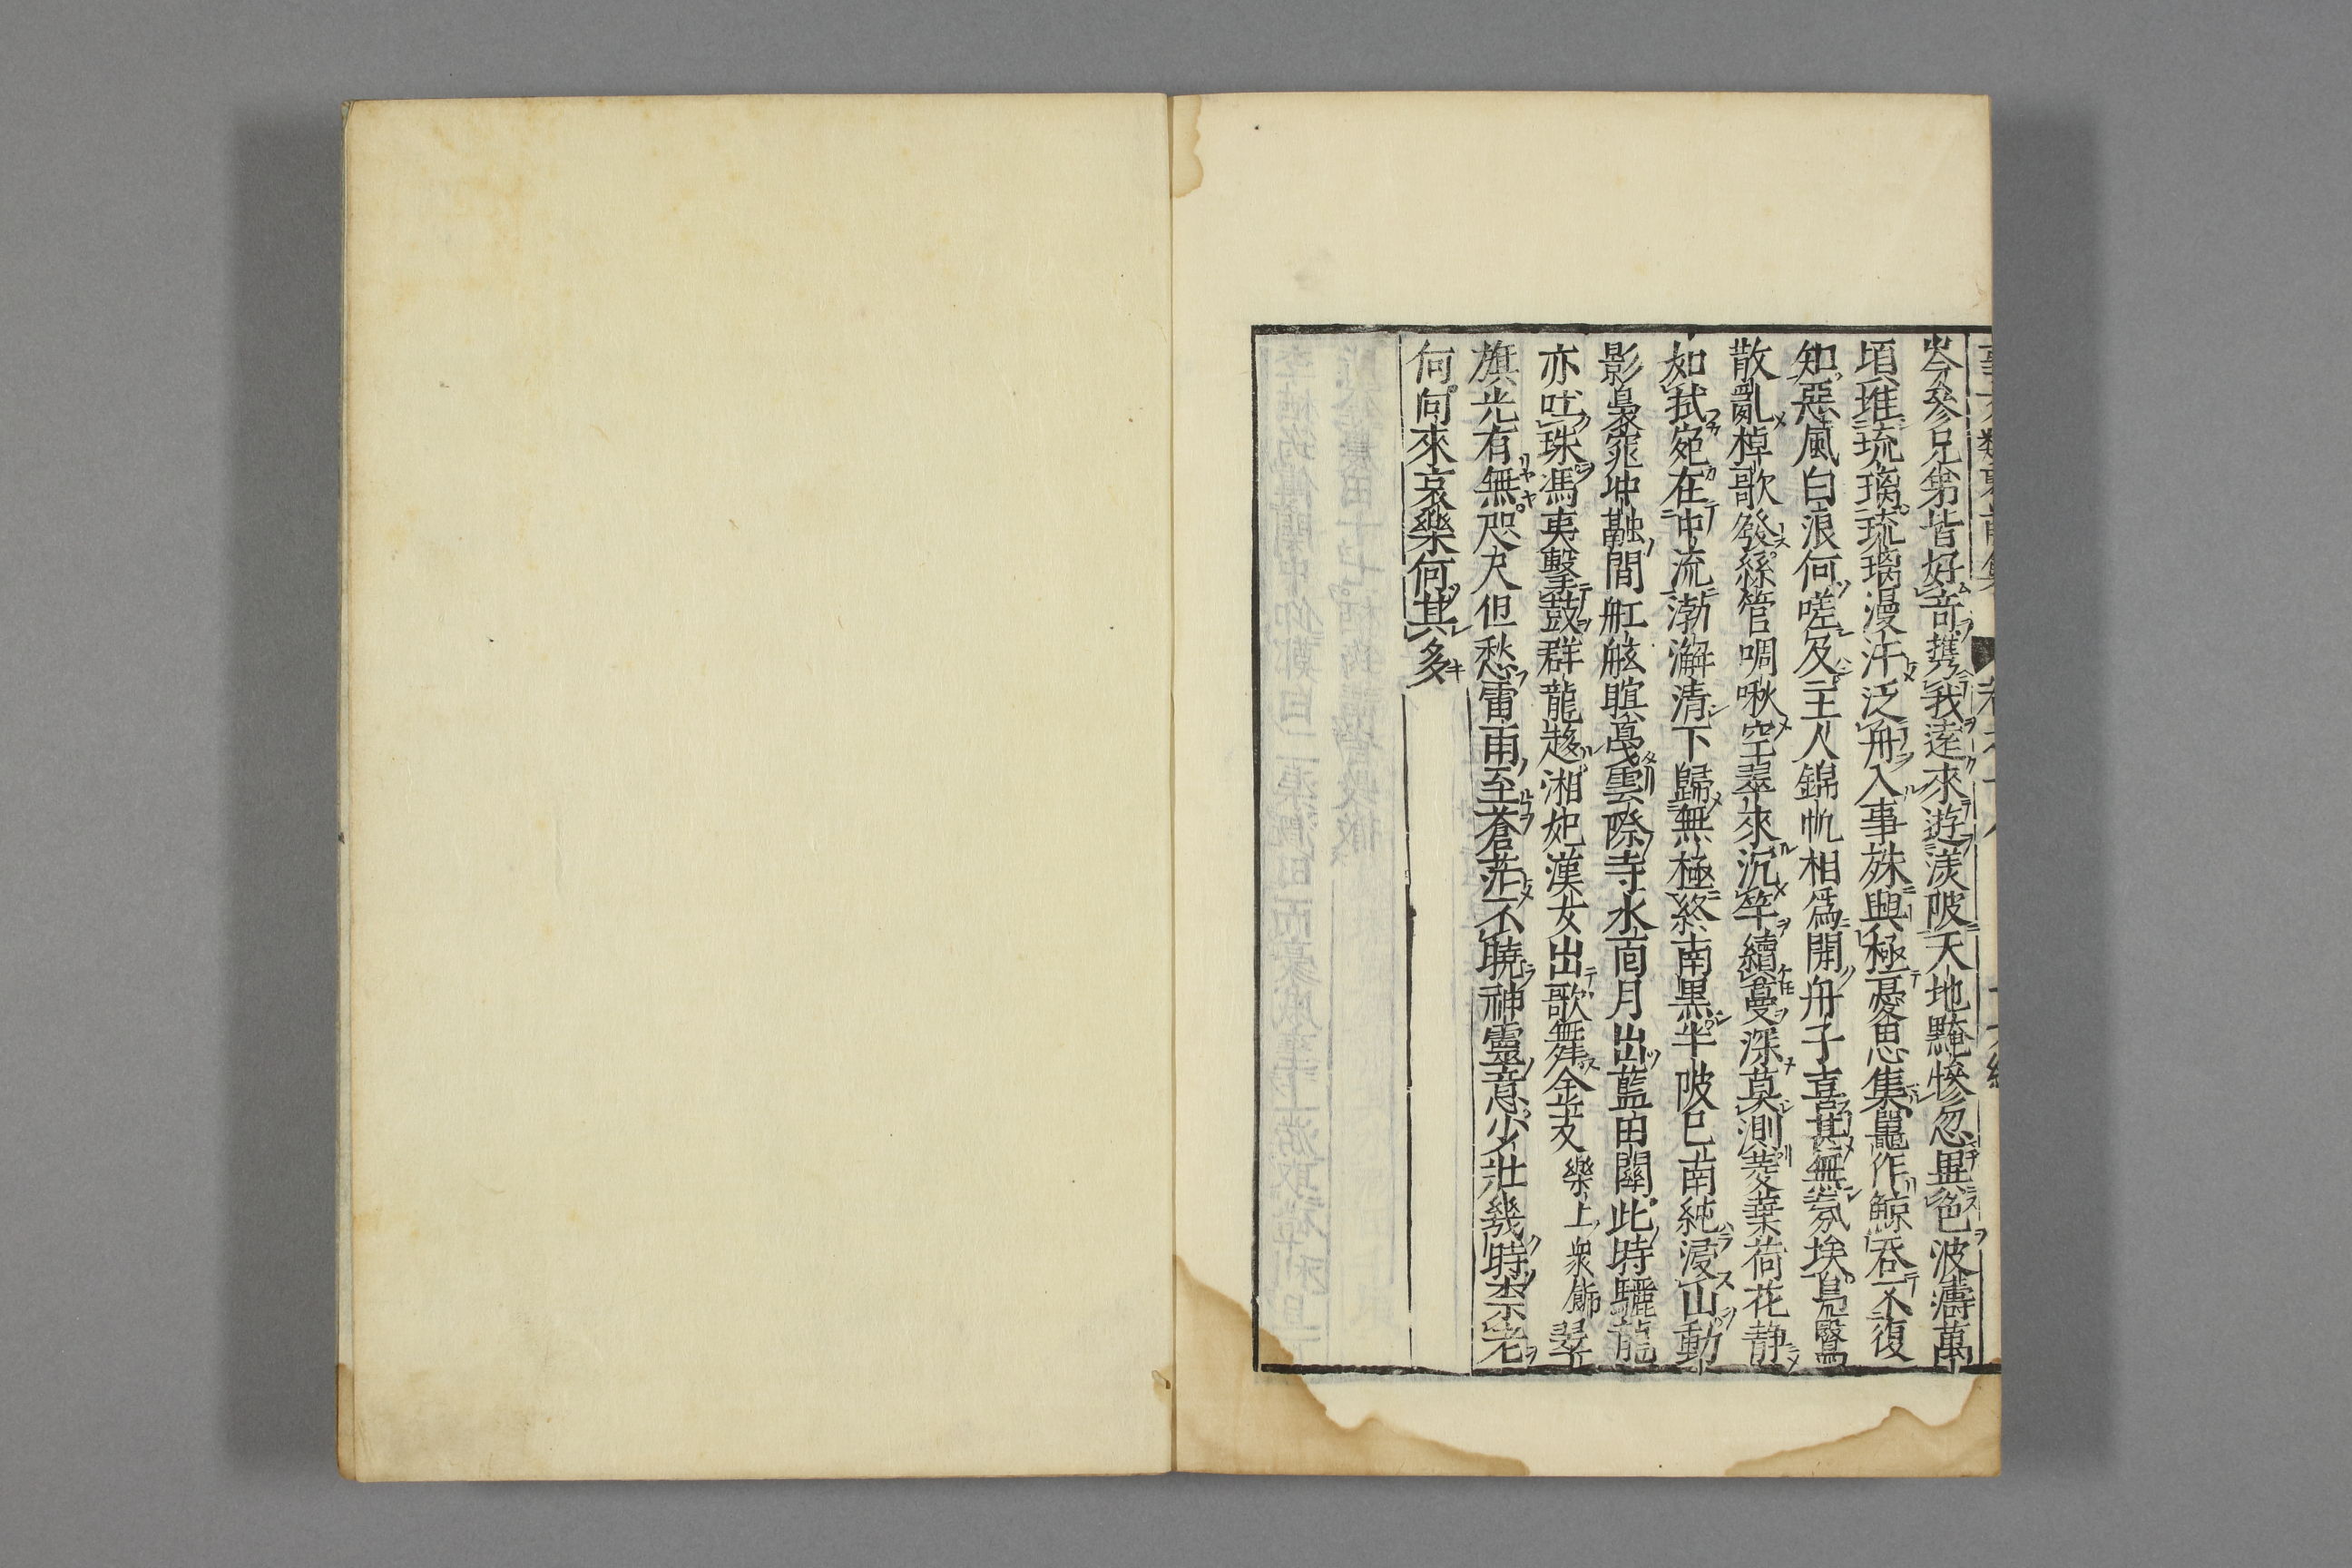 岑參兄弟皆好竒攜我遠來遊渼陂天地黤慘忽異色波濤萬
頃堆琉璃琉璃漫汗泛舟入事殊興極憂思集鼉作鯨吞不復
知惡風白浪何嗟及主人錦帆相爲開舟子喜甚無氛埃鳬鷖
散亂棹歌發絲管啁啾空翠來沉竿續蔓深莫測菱葉荷花静
如拭宛在中流渤澥清下歸無極終南黒半陂已南純浸山動
影裊窕冲融間舡舷暝戞雲際寺水面月出藍田關此時驪龍
亦吐珠馮夷擊鼓群龍趍湘妃漢女出歌舞金支樂上衆飾翠
旗光有無咫尺但愁雷雨至蒼茫不曉神靈意少壯幾時柰老
何向來哀樂何其多